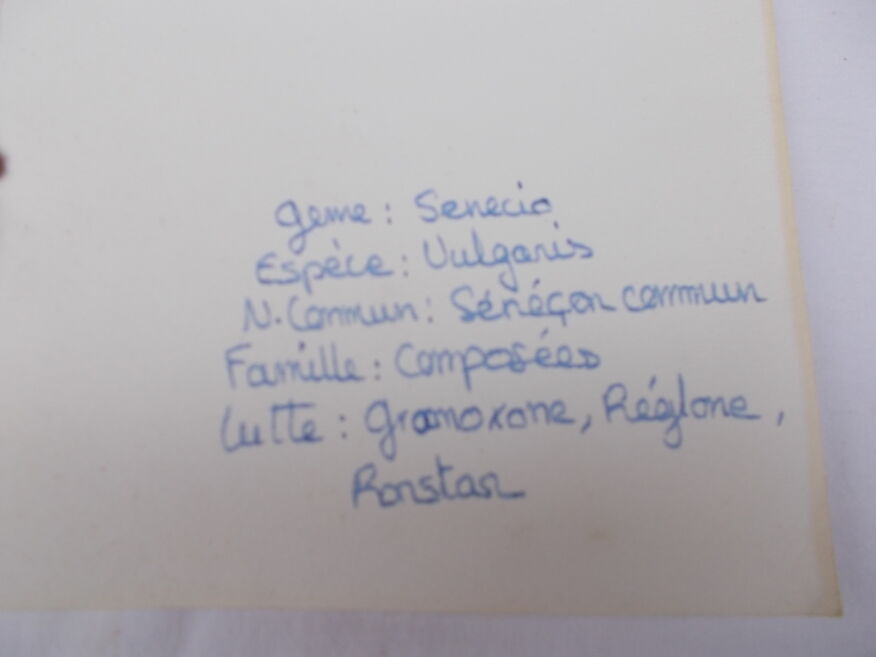 Genre : Senecio
Espèce : Vulgaris
N. Commun : Sénéçon commun
Famille : Composées
Lutte : Gramoxone, Réglone,
Ronstar